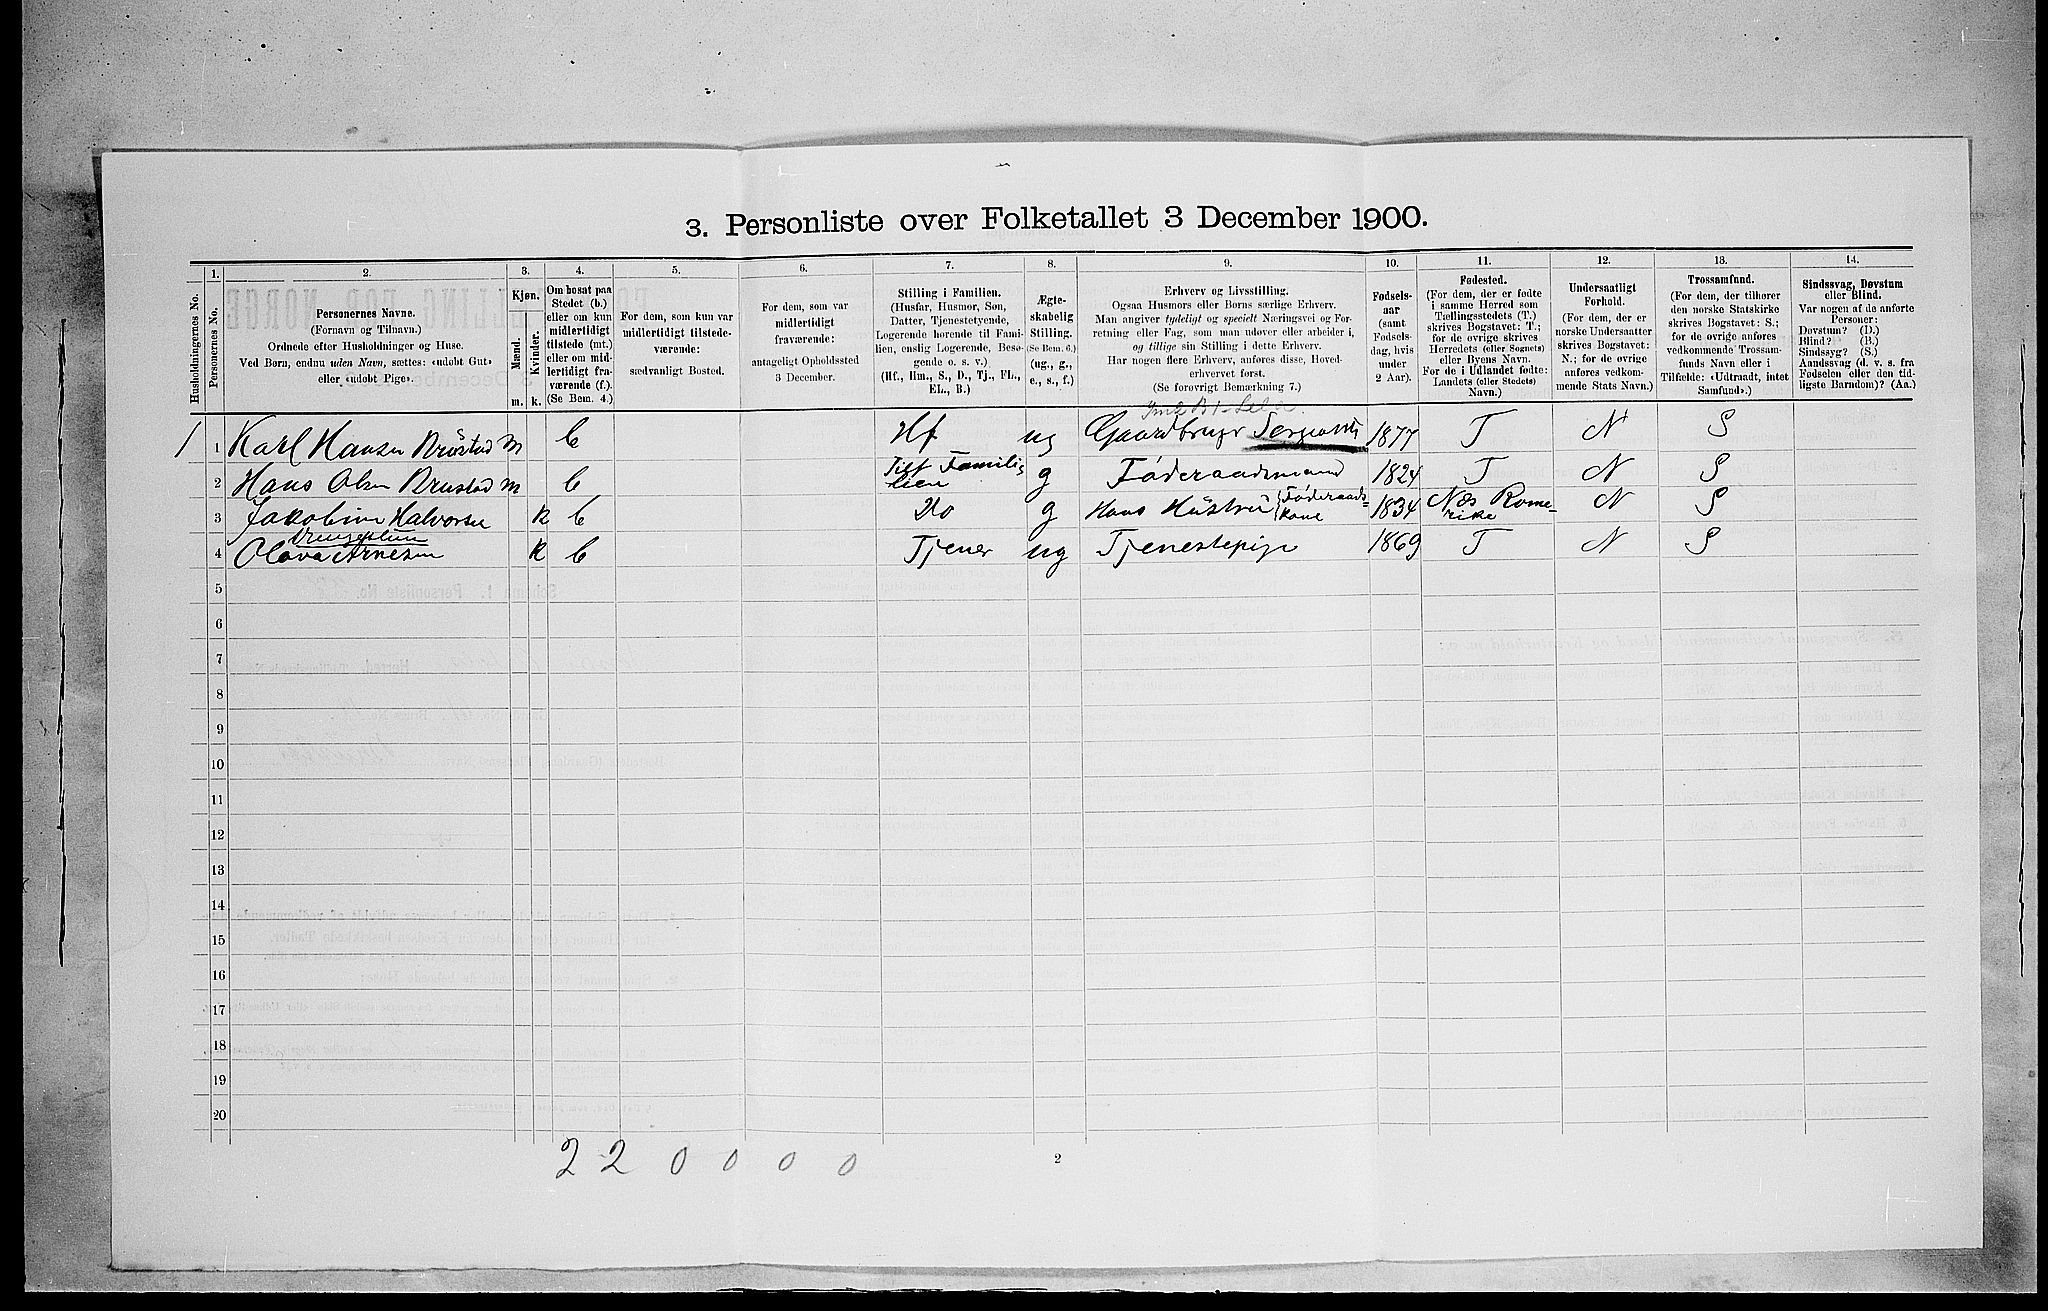 3. Personliste over Folketallet 3 December 1900.
1. 2. 3. 4. 5. 6. 7. 8. 9. 10. 11. 12. 13. 14.
Husholdningernes No.
Personernes No.
Personernes Navne.
(Fornavn og Tilnavn.)
Ordnede efter Husholdninger og Huse.
Ved Børn, endnu uden Navn, sættes: «udøbt Gut»
eller «udøbt Pige».
Kjøn.
Mænd.
Kvinder.
m. k.
Om bosat paa
Stedet (b.)
eller om kun
midlertidigt
tilstede (mt.)
eller om mid-
lertidigt fra-
værende (f.)
(Se Bem. 4.)
For dem, som kun var
midlertidigt tilstede-
værende:
sædvanligt Bosted.
For dem, som var
midlertidigt
fraværende:
antageligt Opholdssted
3 December.
Stilling i Familien.
(Husfar, Husmor, Søn,
Datter, Tjenestetyende,
Logerende hørende til Fami-
lien, enslig Logerende, Besø-
gende o. s. v.)
(Hf., Hm., S., D., Tj., FL.,
EL., B.)
Ægte-
skabelig
Stilling.
(Se Bem. 6.)
(ug., g.,
e., s., f.)
Erhverv og Livsstilling.
Ogsaa Husmors eller Børns særlige Erhverv.
Man angiver tydeligt og specielt Næringsvei og For-
retning eller Fag, som man udøver eller arbeider i,
og tillige sin Stilling i dette Erhverv.
Har nogen flere Erhverv, anføres disse, Hoved-
erhvervet først.
(Se forøvrigt Bemærkning 7.)
Fødsels-
aar
(samt
Fødsels-
dag, hvis
under
2 Aar).
Fødested.
(For dem, der er fødte
i samme Herred som
Tællingsstedets (T.)
skrives Bogstavet: T.;
for de øvrige skrives
Herredets (eller Sognets)
eller Byens Navn.
For de i Udlandet fødte:
Landets (eller Stedets)
Navn.)
Undersaatligt
Forhold.
(For dem, der er
norske Undersaatter
skrives Bogstavet:
N.; for de øvrige
anføres vedkom-
mende Stats Navn.)
Trossamfund.
(For dem, der tilhører
den norske Statskirke
skrives Bogstavet: S.;
for de øvrige anføres
vedkommende Trossam-
funds Navn eller i
Tilfælde: «Udtraadt, intet
Samfund».)
Sindssvag, Døvstum
eller Blind.
Var nogen af de anførte
Personer:
Døvstum? (D.)
Blind? (B.)
Sindssyg? (S.)
Aandssvag (d. v. s. fra
Fødselen eller den tid-
ligste Barndom)? (Aa.)
1 1 Karl Hansen Brustad m b Hf ug Gaardbruger 1877 T N S
2 Hans Olsen Brustad m b Till Familien g Føderaadsmand 1824 T N S
3 Jakobine Halvorsen k b Do g Hans Hustru Føderaads-
kone 1834 Næs Rome-
rike N S
4 Olava Arnesen k b Tjener ug Tjenestepige 1869 T N S
5
6
7
8
9
10
11
12
13
14
15
16
17
18
19
20
2 2 0 0 0 0
2